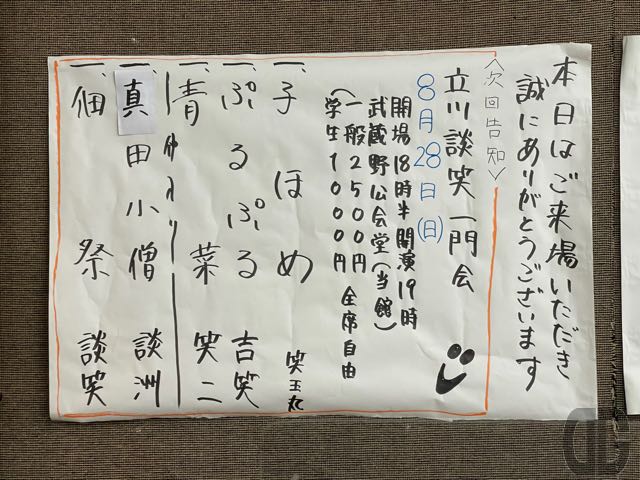 本日はご来場いただき
誠にありがとうございます
〈次回告知〉
立川談笑一門会
8月28日(日)
開場18時半開演19時
武蔵野公会堂(当館)
一般2500円
学生1000円 全席自由
一、子ほめ 笑王丸
一、ぷるぷる 吉笑
一、青菜 笑二
仲入り
一、真田小僧 談洲
一、佃祭 談笑